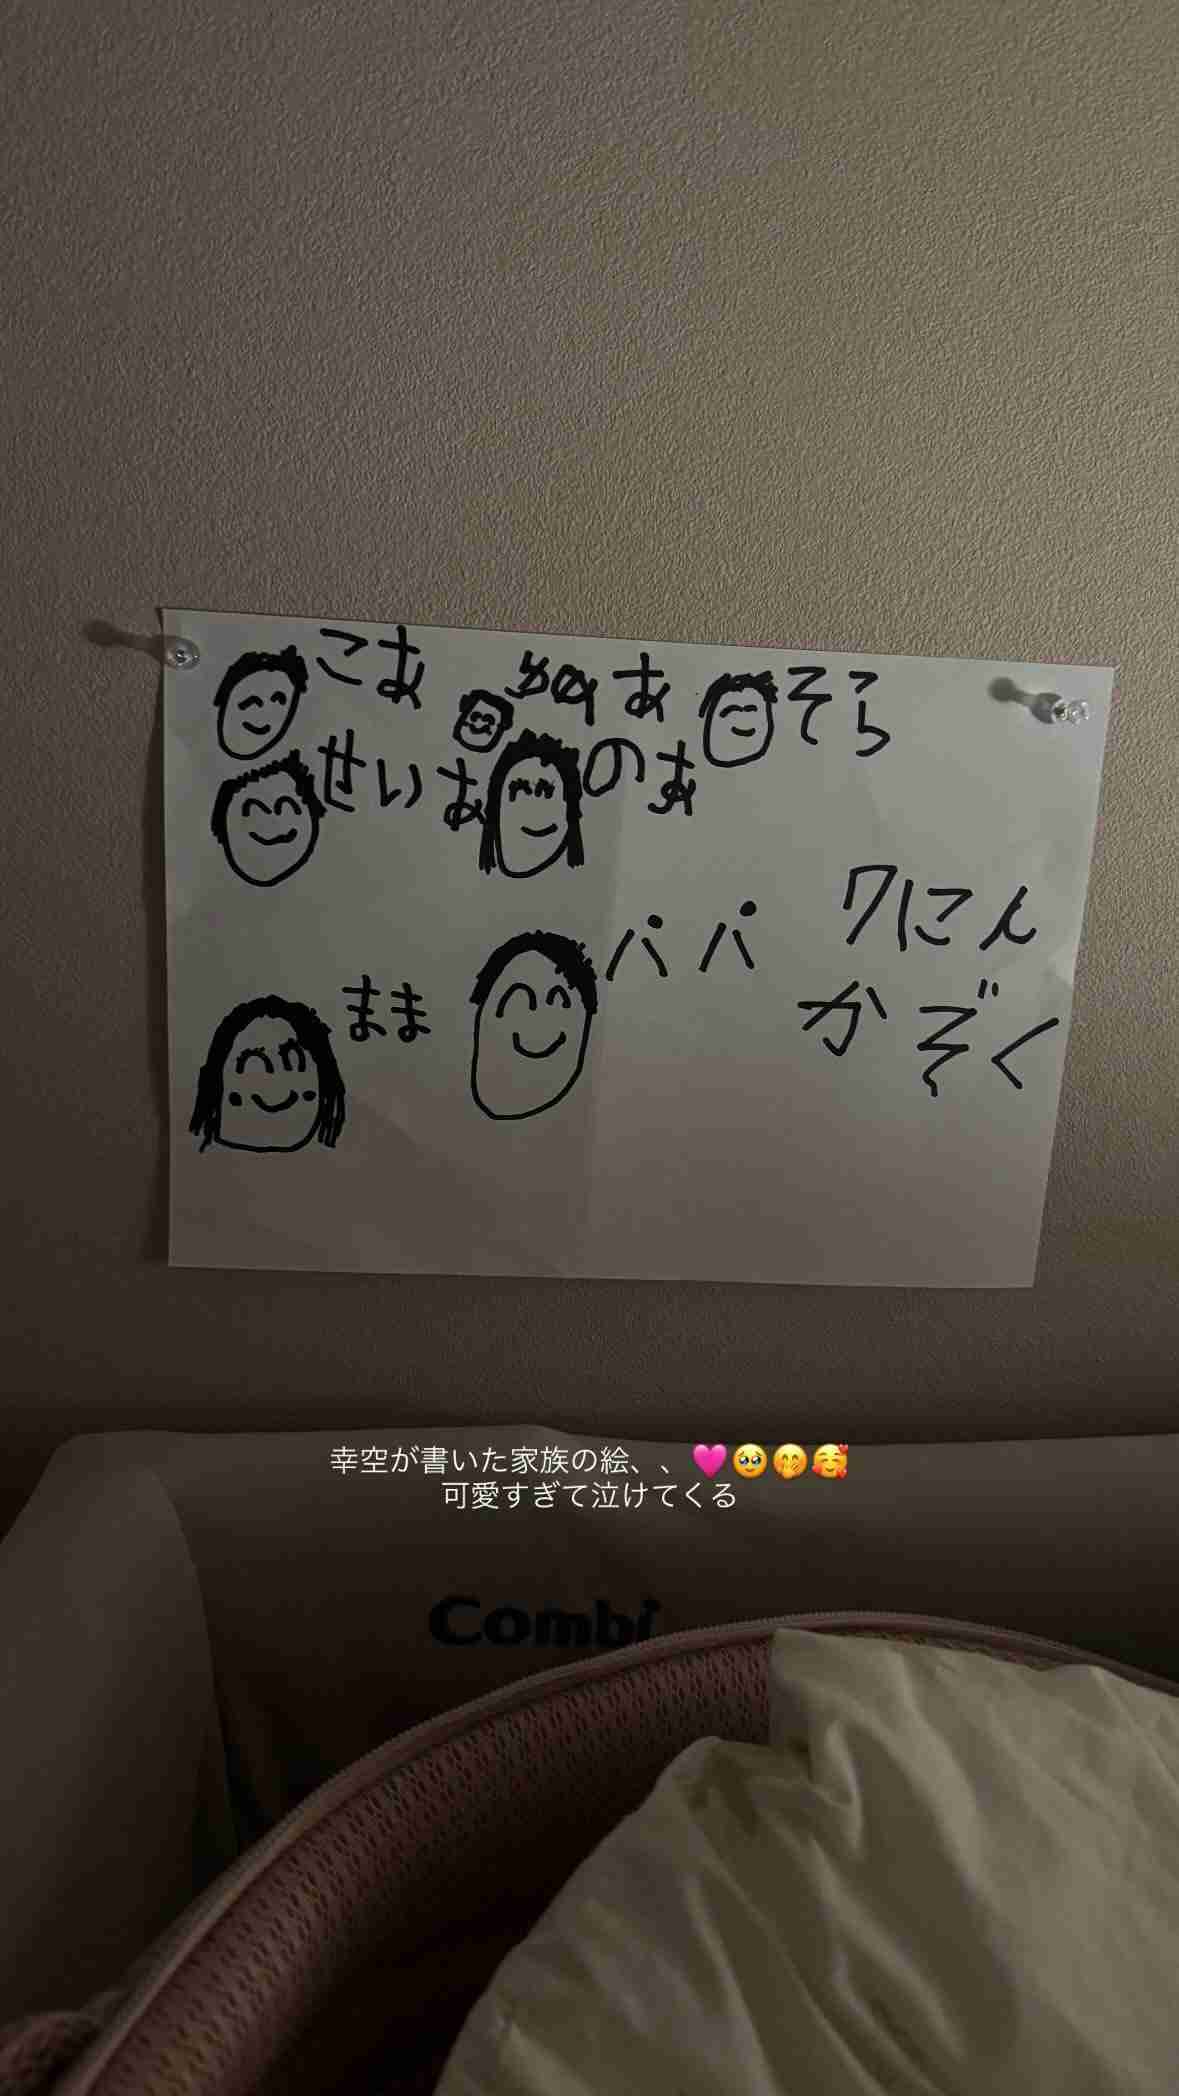 こあ
あ
そら
せいあ
のあ
7にん
かぞく
まま
パパ
幸空が書いた家族の絵、、🩷🥹🤭🥰
可愛すぎて泣けてくる
Combi